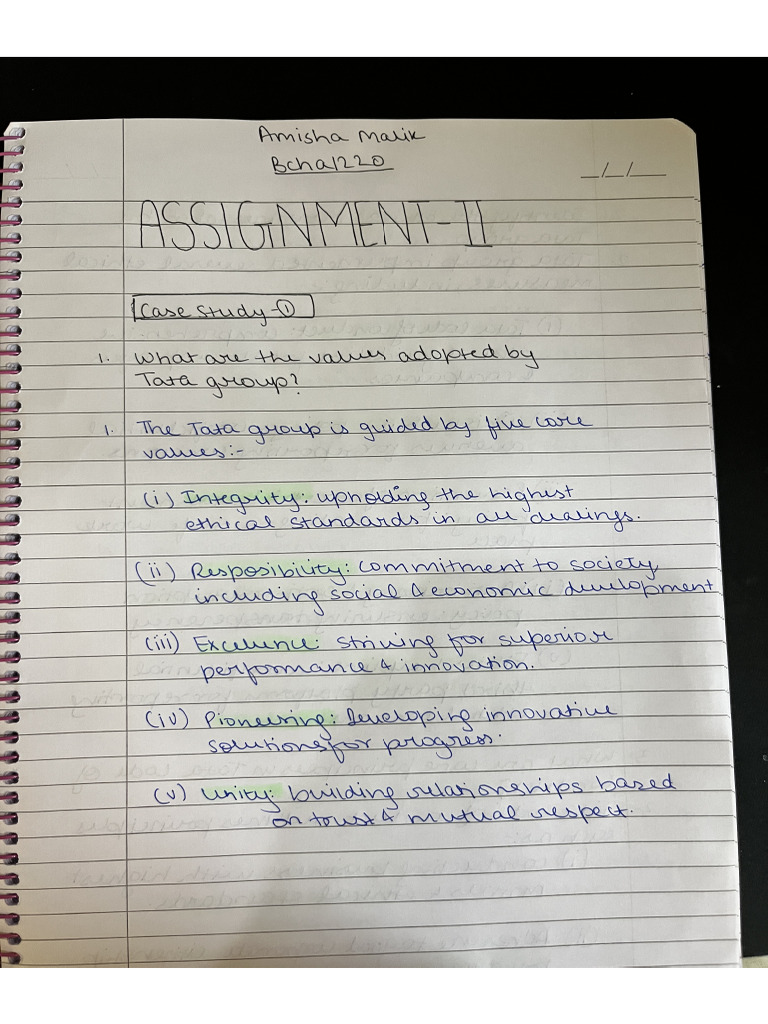 Amisha Malik
Bcha1220
_/_/_
ASSIGNMENT-II
Case Study-①
1. What are the values adopted by
Tata group?
1. The Tata group is guided by five core
values:-
(i) Integrity: upholding the highest
ethical standards in all dealings.
(ii) Resposibility: commitment to society
including social & economic development
(iii) Excellence: striving for superior
performance & innovation.
(iv) Pioneering: Developing innovative
solutions for progress.
(v) Unity: building relationships based
on trust & mutual respect.